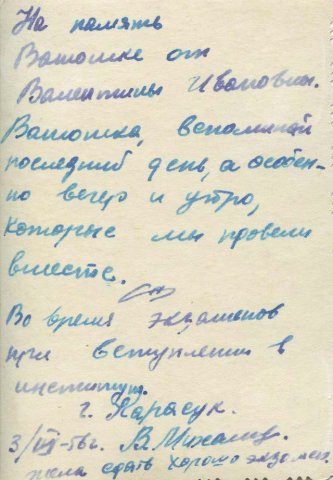 На память
Ватюшке от
Валентины Ивановны.
Ватюшка, вспоминай
последний день, а особен-
но вечер и утро,
которые мы провели
вместе.
Во время экзаменов
при вступлении в
институт.
г. Карасук.
3/VII-56г. В.
сдать хорошо экзамен.